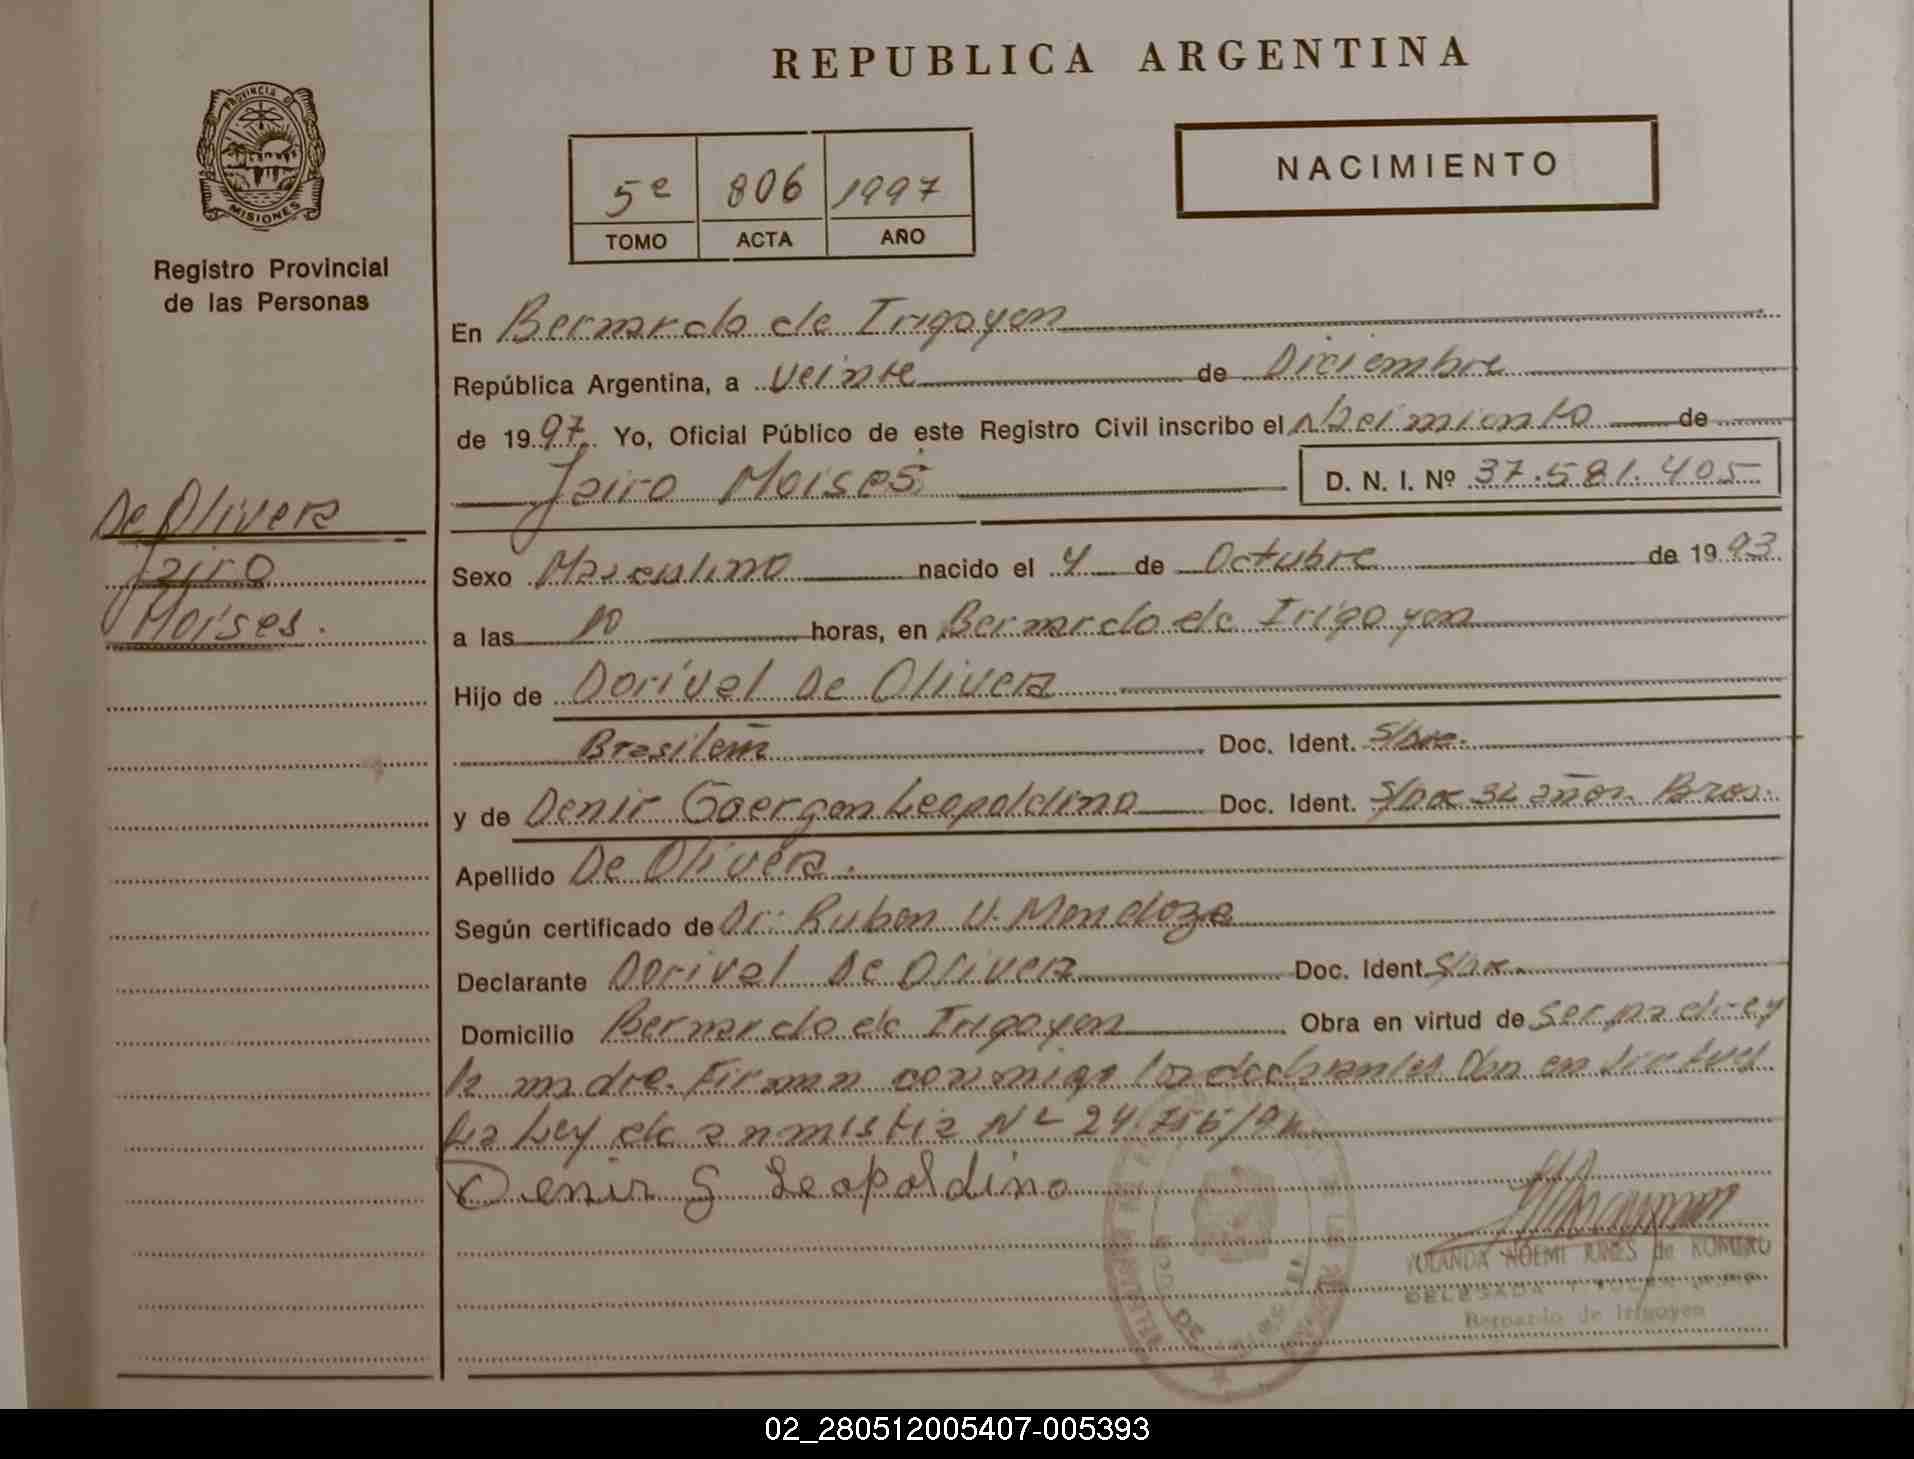 REPUBLICA ARGENTINA
PROVINCIA DE
MISIONES
Registro Provincial
de las Personas
5e 806 1997
TOMO ACTA AÑO
NACIMIENTO
En Bernardo de Irigoyen
República Argentina, a veinte de Diciembre
de 1997. Yo, Oficial Público de este Registro Civil inscribo el Nacimiento de
Jairo Moises D. N. I. Nº 37.581.405
De Olivera
Jairo
Moises.
Sexo Masculino nacido el 4 de Octubre de 1993
a las 10 horas, en Bernardo de Irigoyen
Hijo de Dorival De Olivera
Brasileña Doc. Ident. S/Doc.
y de Denir Goergen Leopoldino Doc. Ident. S/Doc 34 años. Bras.
Apellido De Olivera.
Según certificado de Dr. Ruben V. Mendoza
Declarante Dorival De Olivera Doc. Ident. S/Doc.
Domicilio Bernardo de Irigoyen Obra en virtud de ser padre y
la madre. Firman conmigo los declarantes en virtud
La Ley de anmistia Nº 24.755/96
Denir G Leopoldino
YOLANDA NOEMI de ROMERO
DELEGADA
Bernardo de Irigoyen
02_280512005407-005393